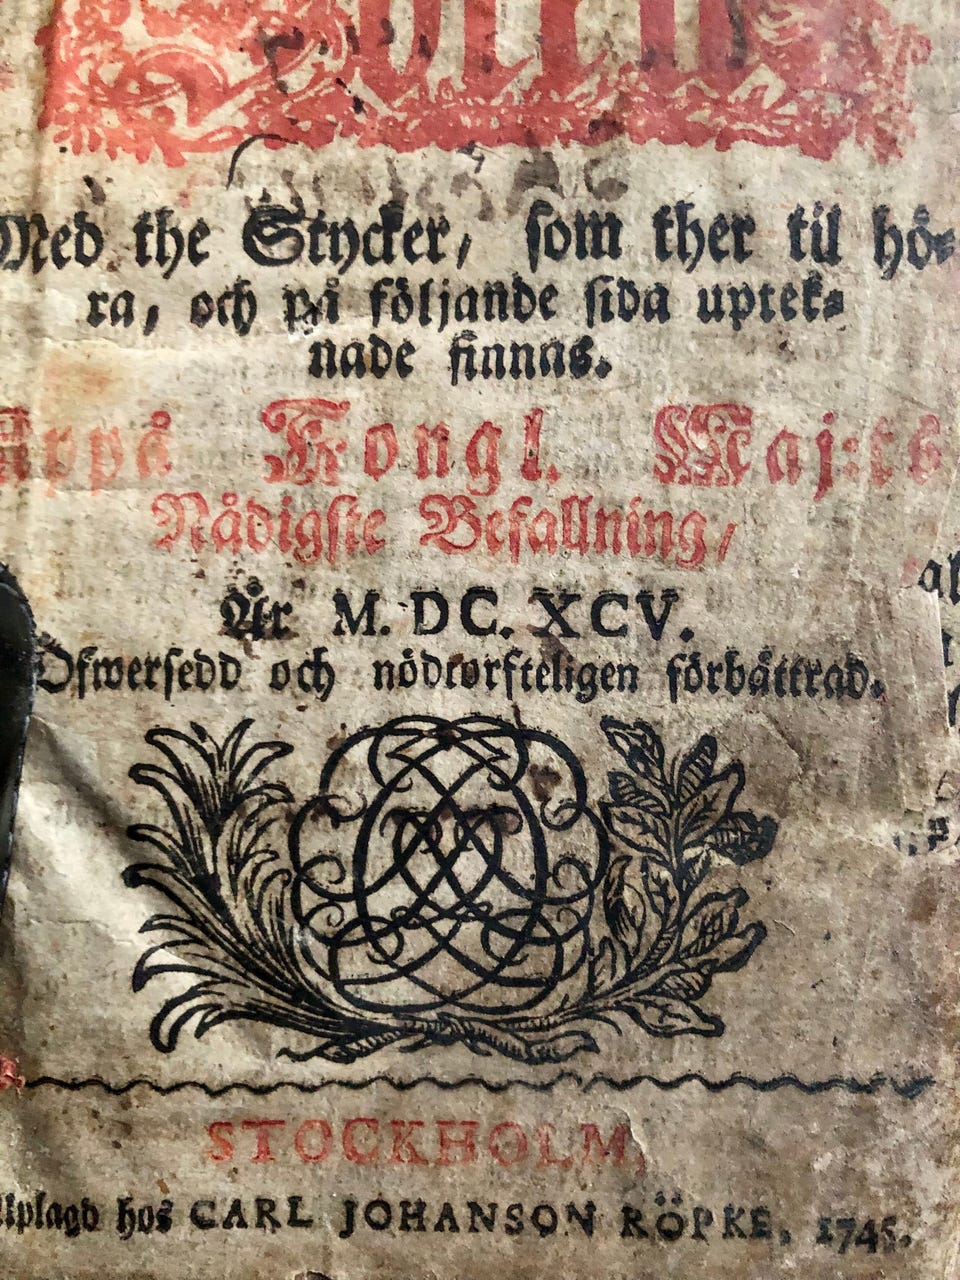 Med the Stycker, som ther til hö-
ra, och på följande sida uptek-
nade finnas.
Uppå Kongl. Maj:tß
Nådigste Befallning,
År M. DC. XCV.
Öfwersedd och nödtorfteligen förbättrad.
STOCKHOLM,
Uplagd hos CARL JOHANSON RÖPKE, 1745.